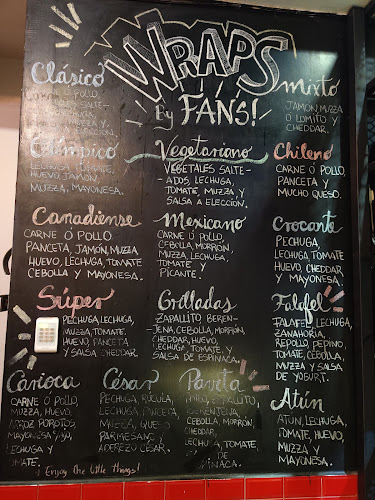 WRAPS
By FANS!
Clásico
CARNE Ó POLLO
SALTE-
LECHUGA,
Y
Olímpico
LECHUGA, TOMATE
HUEVO, JAMÓN
MUZZA, MAYONESA.
Canadiense
CARNE Ó POLLO
PANCETA, JAMÓN, MUZZA,
HUEVO, LECHUGA, TOMATE
CEBOLLA Y MAYONESA.
Súper
PECHUGA, LECHUGA,
MUZZA, TOMATE,
HUEVO, PANCETA
Y SALSA CHEDDAR.
Carioca
CARNE Ó POLLO,
MUZZA, HUEVO,
ARROZ, POROTOS,
MAYONESA
LECHUGA Y
TOMATE.
Vegetariano
VEGETALES SALTE-
ADOS, LECHUGA,
TOMATE, MUZZA Y
SALSA A ELECCIÓN.
Mexicano
CARNE Ó POLLO,
CEBOLLA, MORRÓN,
MUZZA, LECHUGA,
TOMATE Y
PICANTE.
Grilladas
ZAPALLITO, BEREN-
JENA, CEBOLLA, MORRÓN,
CHEDDAR, HUEVO,
LECHUGA, TOMATE Y
SALSA DE ESPINACA.
César
PECHUGA, RÚCULA,
LECHUGA, PANCETA,
MUZZA, QUESO
PARMESANO Y
ADEREZO CÉSAR.
BERENJENA,
CEBOLLA, MORRÓN,
CHEDDAR,
LECHUGA, TOMATE,
DE
ESPINACA.
mixto
JAMÓN, MUZZA
Ó LOMITO Y
CHEDDAR.
Chileno
CARNE Ó POLLO,
PANCETA Y
MUCHO QUESO.
Crocante
PECHUGA,
LECHUGA, TOMATE
HUEVO, CHEDDAR
Y MAYONESA.
Falafel
FALAFEL, LECHUGA,
ZANAHORIA,
REPOLLO, PEPINO,
TOMATE, CEBOLLA,
MUZZA Y SALSA
DE YOGURT.
Atún
ATÚN, LECHUGA,
TOMATE, HUEVO,
MUZZA Y
MAYONESA.
Enjoy the little things!